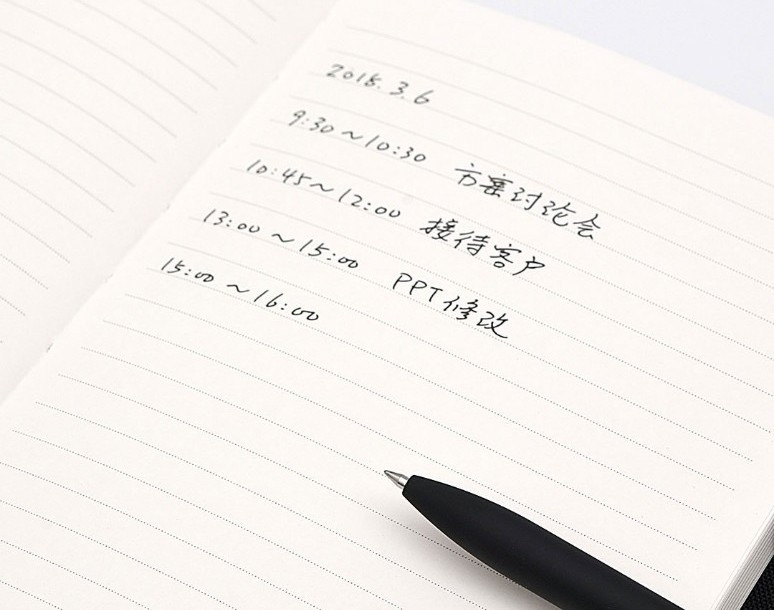 2018.3.6
9:30~10:30 方案讨论会
10:45~12:00 接待客户
13:00~15:00 PPT修改
15:00~16:00